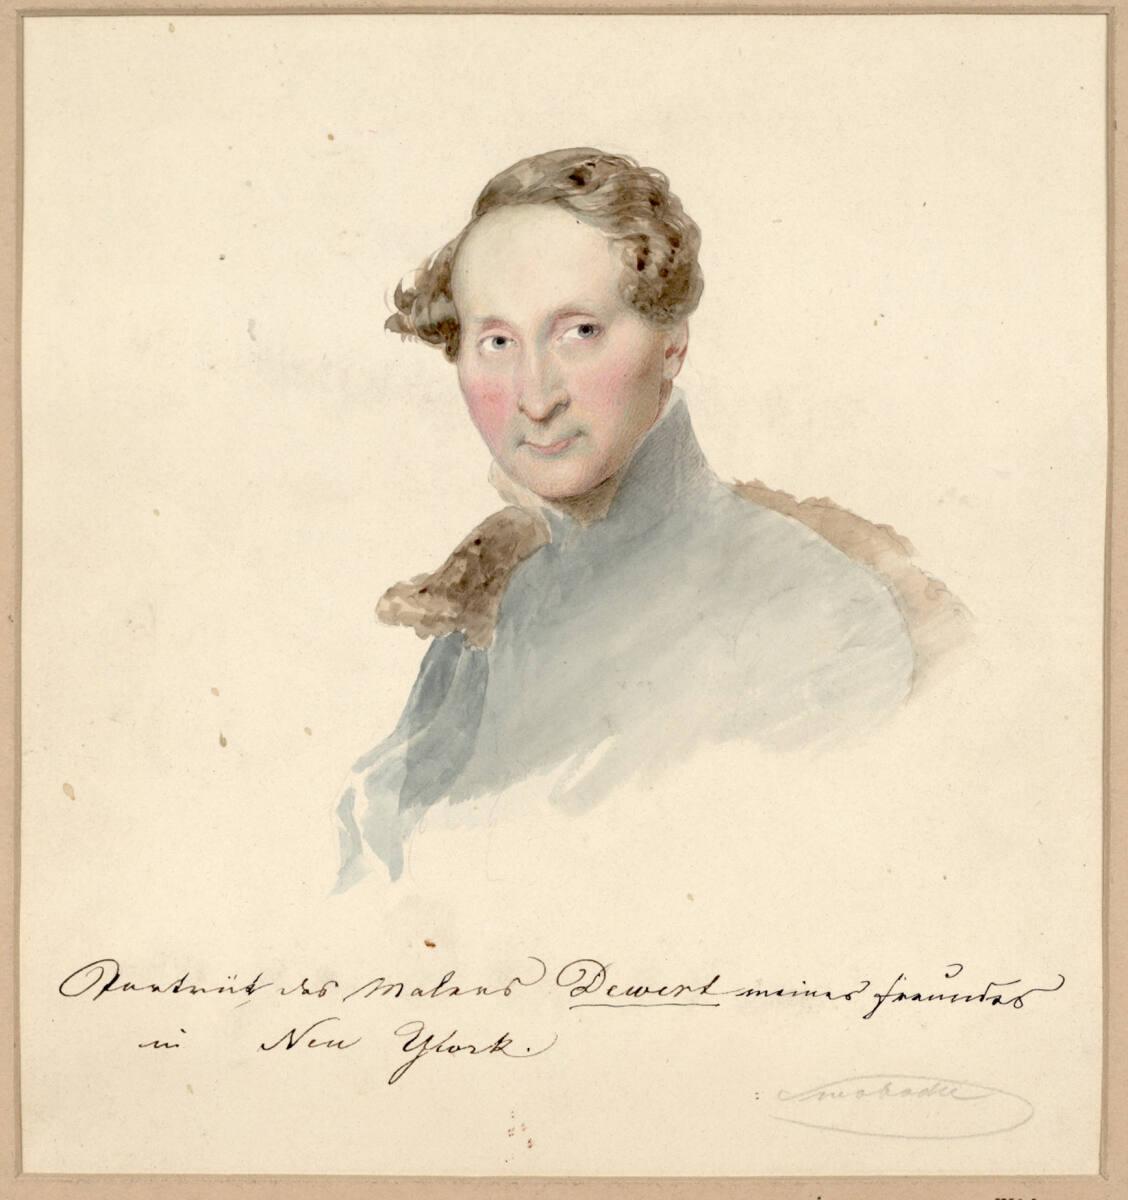 Portrait des Malers Dewert meines Freundes
in New York.
Swoboda